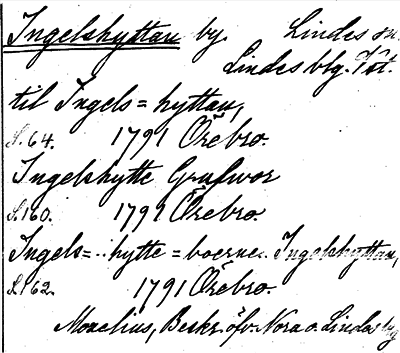 Ingelshyttan by. Lindes sn.
Lindes blg. Vst.
til Ingels=hyttan,
S. 64. 1791 Örebro.
Ingelshytte Grufwor
S. 160. 1791 Örebro.
Ingels=hytte=boerne. Ingelshyttan,
S. 162. 1791 Örebro.
Morelius, Beskr. öfv. Nora o. Linda bg